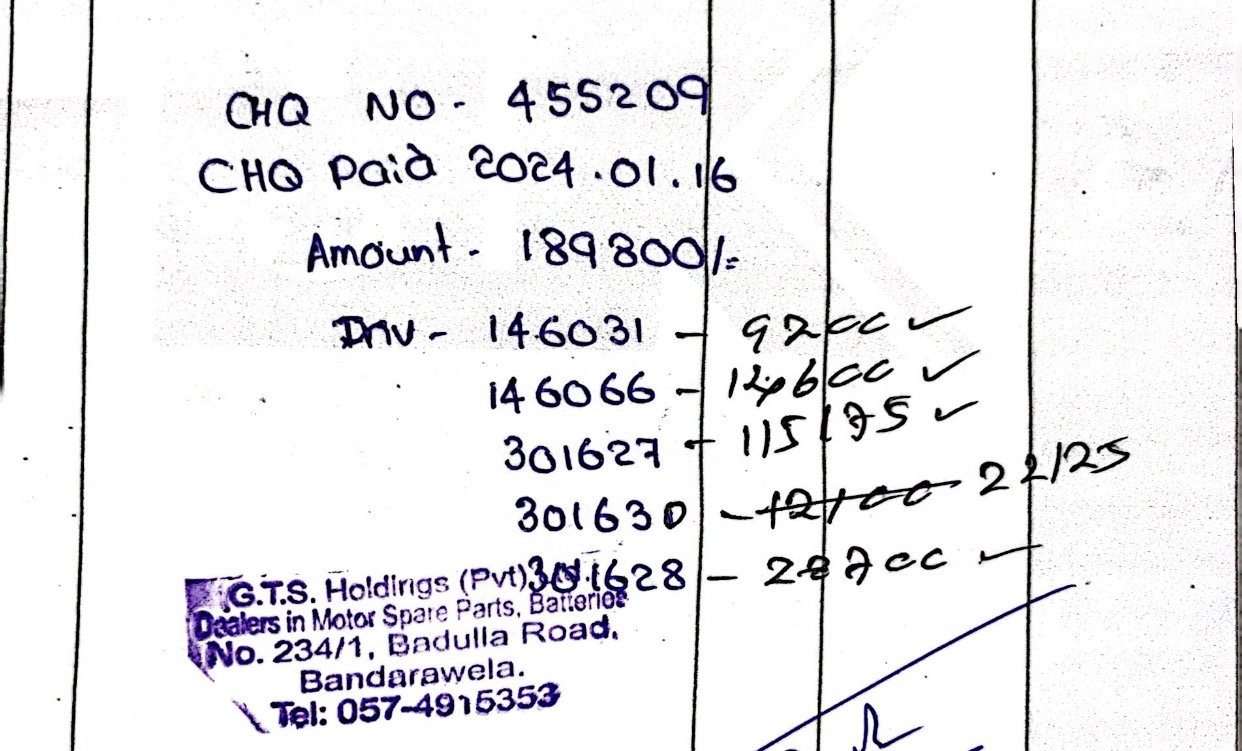 CHQ NO - 455209
CHQ Paid 2024.01.16
Amount - 189800/=
Inv - 146031 - 9200 ✓
146066 - 14600 ✓
301627 - 115175 ✓
301630 - 12100 22125
301628 - 28700 ✓
G.T.S. Holdings (Pvt)
Dealers in Motor Spare Parts, Batteries
No. 234/1, Badulla Road,
Bandarawela.
Tel: 057-4915353